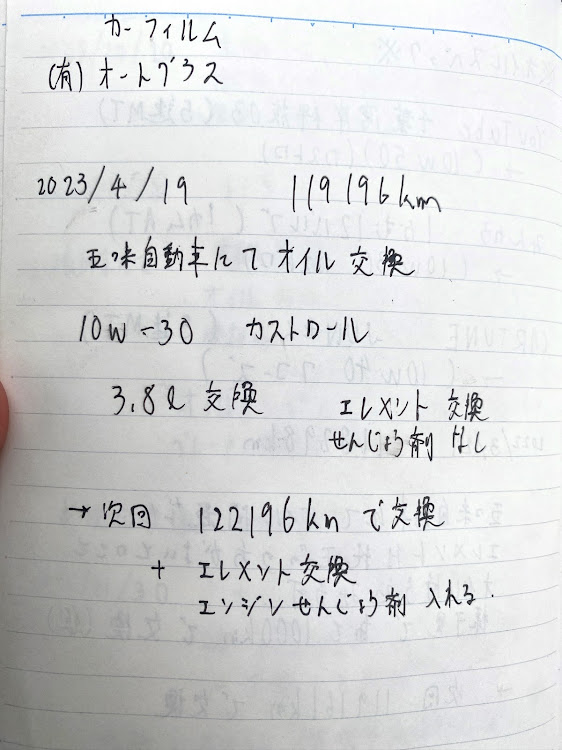 カーフィルム
(有)オートグラス
2023/4/19 119196km
五味自動車にて オイル 交換
10W-30 カストロール
3.8ℓ 交換 エレメント 交換
せんじょう剤 なし
→次回 122196kmで交換
+ エレメント交換
エンジンせんじょう剤 入れる.